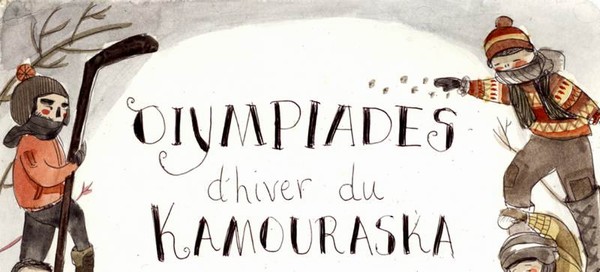 OLYMPIADES
d'hiver du
KAMOURASKA